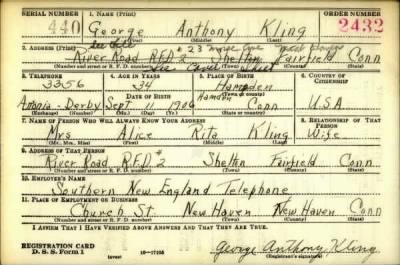 SERIAL NUMBER 1. NAME (Print) ORDER NUMBER
440 George Anthony Kling 2432
(First) (Middle) (Last)
2. ADDRESS (Print) # 23
River Road R.F.D. #2 Shelton Fairfield Conn
(Number and street or R. F. D. number) (Town) (County) (State)
3. TELEPHONE 4. AGE IN YEARS 5. PLACE OF BIRTH 6. COUNTRY OF CITIZENSHIP
3356 34 Hamden
DATE OF BIRTH Hamden (Town or county)
Ansonia-Derby Sept 11 1906 Conn U.S.A
(Exchange) (Number) (Mo.) (Day) (Yr.) (State or country)
7. NAME OF PERSON WHO WILL ALWAYS KNOW YOUR ADDRESS 8. RELATIONSHIP OF THAT PERSON
Mrs Alice Rita Kling Wife
(Mr., Mrs., Miss) (First) (Middle) (Last)
9. ADDRESS OF THAT PERSON
River Road R.F.D. #2 Shelton Fairfield Conn
(Number and street or R. F. D. number) (Town) (County) (State)
10. EMPLOYER'S NAME
Southern New England Telephone
11. PLACE OF EMPLOYMENT OR BUSINESS
Church St. New Haven New Haven Conn
(Number and street or R. F. D. number) (Town) (County) (State)
I AFFIRM THAT I HAVE VERIFIED ABOVE ANSWERS AND THAT THEY ARE TRUE.
REGISTRATION CARD
D. S. S. Form 1 (over) 16-17105 George Anthony Kling
(Registrant's signature)